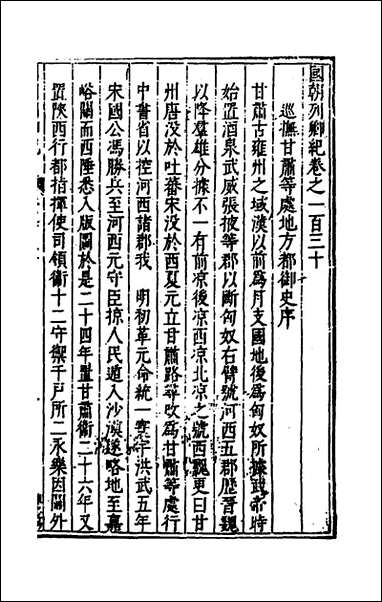 國朝列卿紀卷之一百三十
巡撫甘肅等處地方都御史序
甘肅古雍州之域漢以前爲月支國地後爲匈奴所據武帝時
始置酒泉武威張掖等郡以斷匈奴右臂號河西五郡歷晉魏
以降羣雄分據不一有前凉後凉西凉北凉之號西魏更曰甘
州唐没於吐蕃宋没於西夏元立甘肅路等攺爲甘肅等處行
中書省以控河西諸郡我 明初革元命統一寰宇洪武五年
宋國公馮勝兵至河西元守臣掠人民遁入沙漠遂略地至嘉
峪關而西陲悉入版圖於是二十四年置甘肅衛二十六年又
置陝西行都指揮使司領衛十二守禦千戸所二永樂因關外